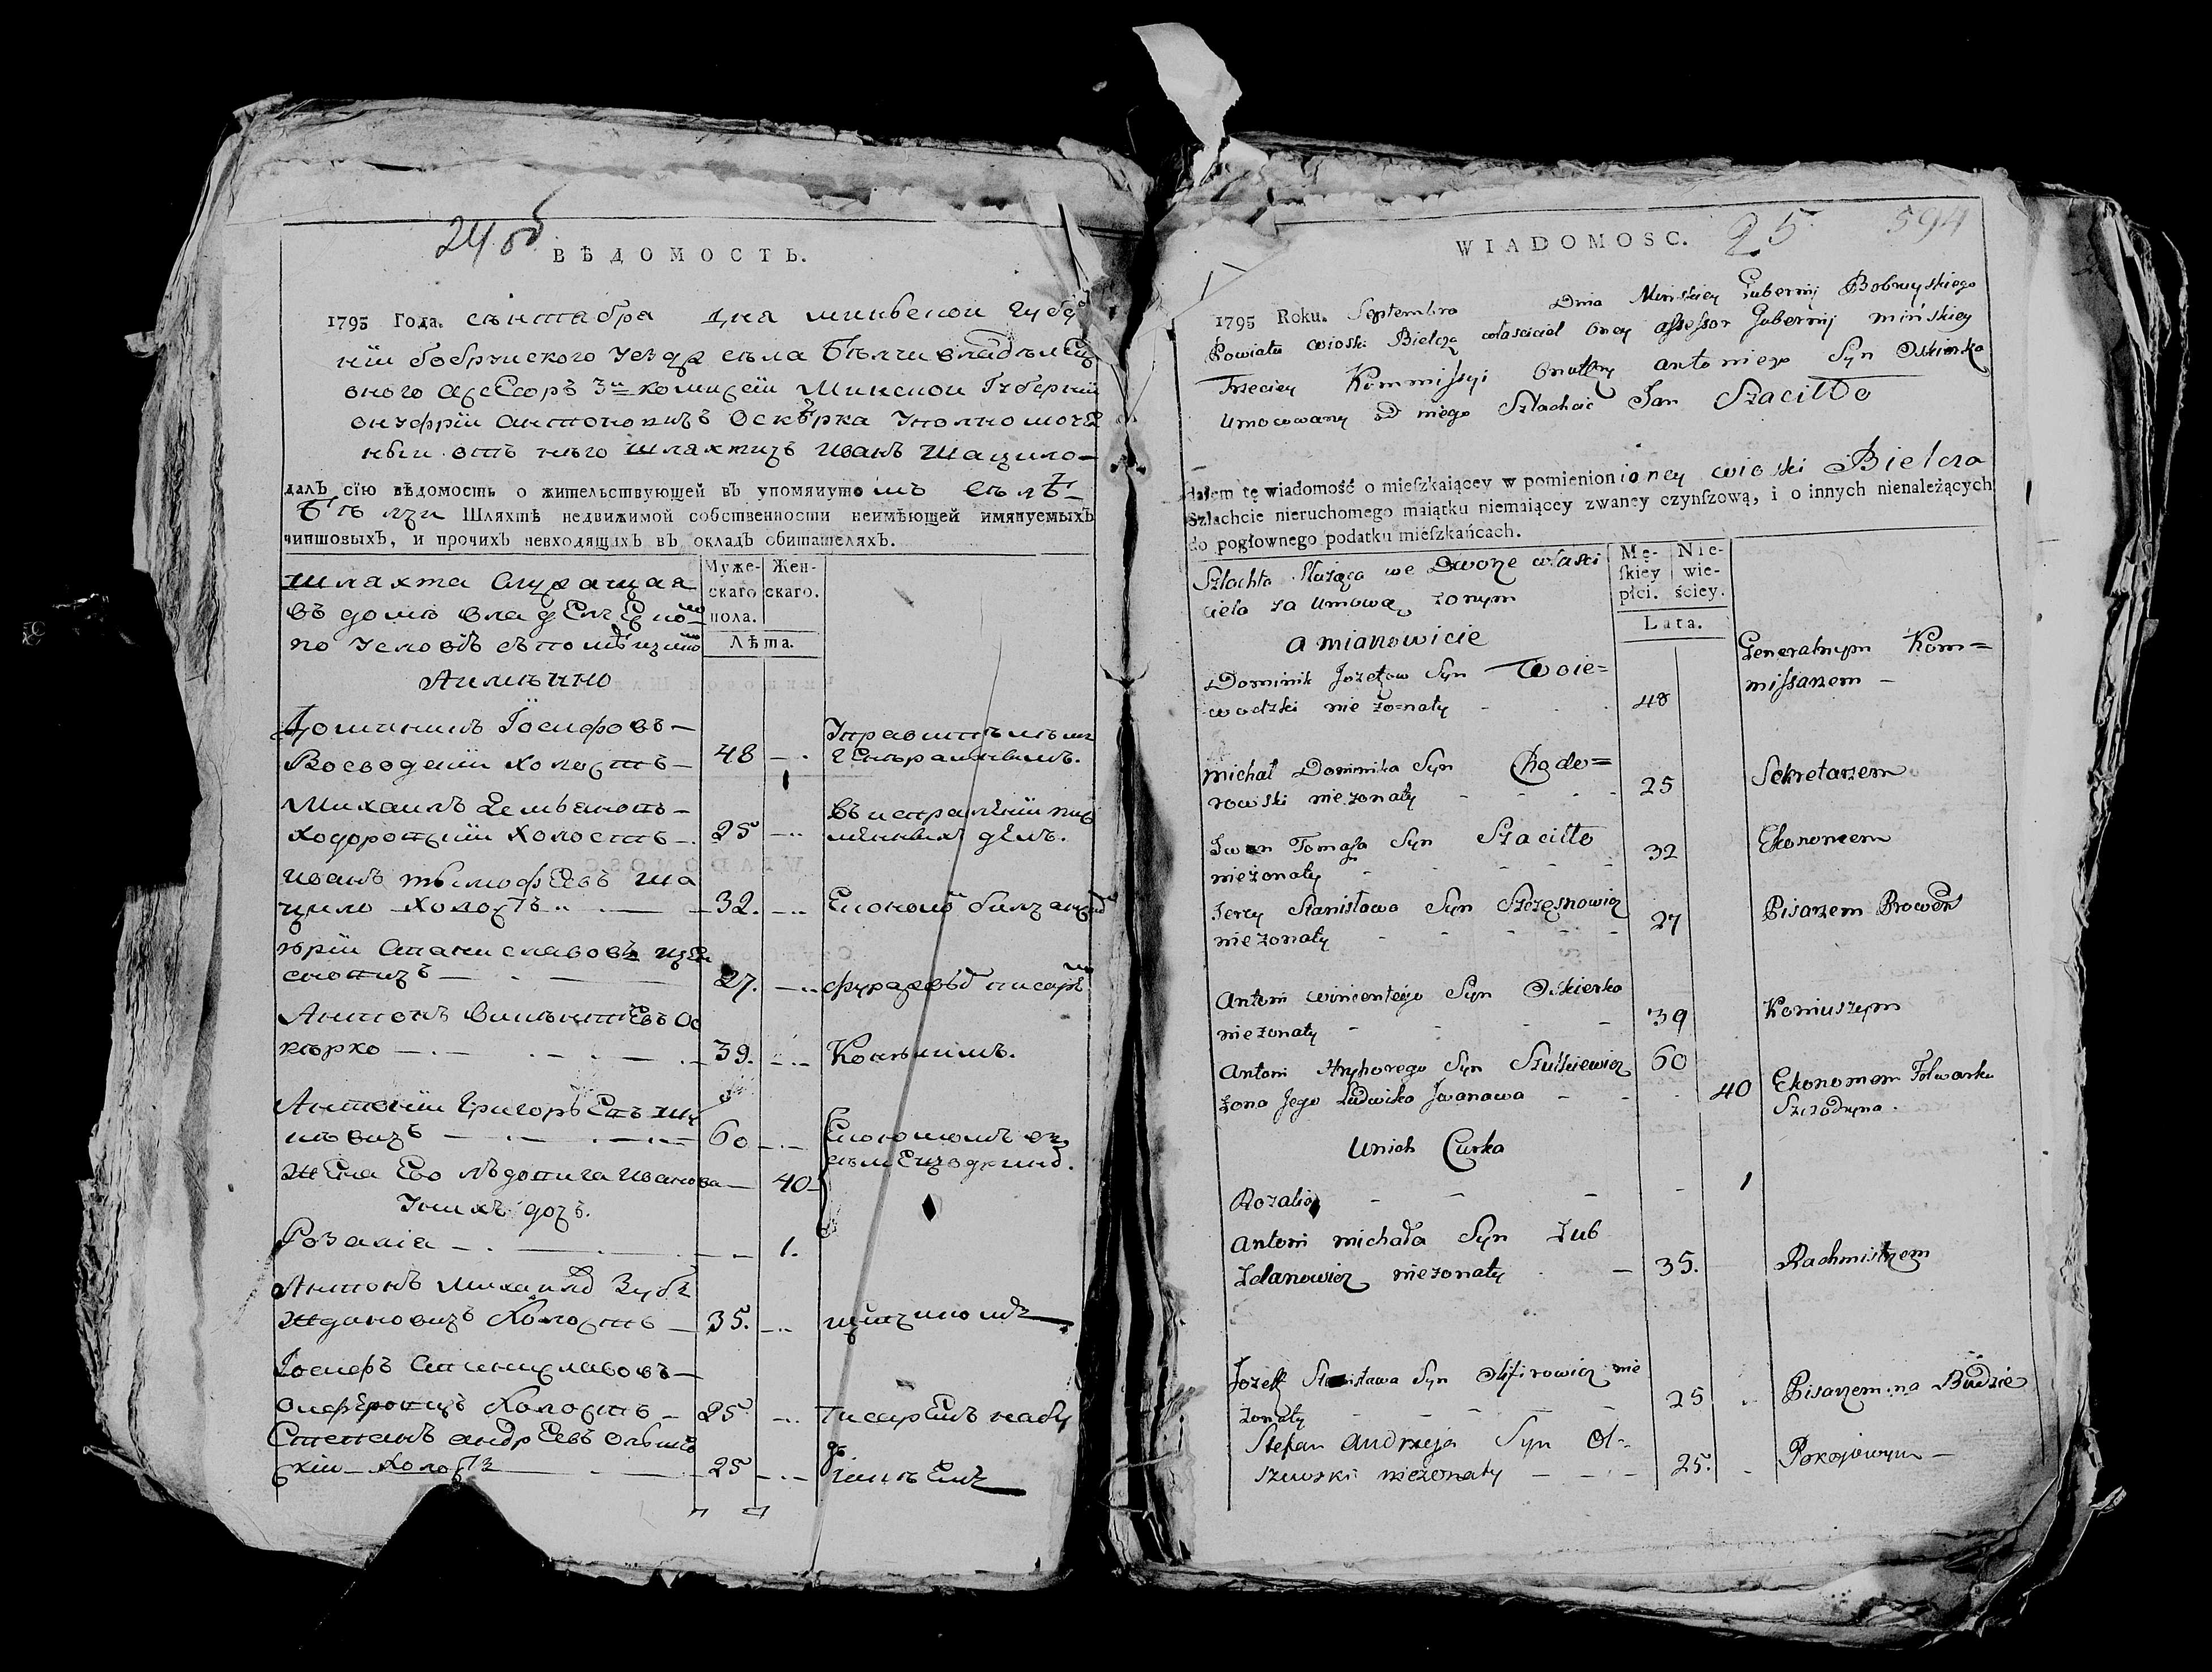 24 об
ВѢДОМОСТЬ.
1795 Года. сѣнтабра дна минской губер
нїи бобруиского уезда села Бѣлчи владѣлец
оного асесоръ 3й комисѣи Минской Губернїи
онуфрїи антоновичъ Оскѣрка Уполномоче
ный отъ него шляхтичъ иванъ Шацило
далъ сїю вѣдомость о жительствующей въ упомянутомъ селѣ
Бѣлчи Шляхтѣ недвижимой собственности неимѣющей имянуемыхъ
чиншовыхъ, и прочихъ невходящихъ въ окладъ обитателяхъ.
Шляхта служащая
въ доме
по условѣ
Аимѣнно
Муже-
скаго
пола.
Жен-
скаго.
Лѣта.
Доминикъ Іосифовъ
Воеводскїи холостъ 48 Управителемъ
Генеральнымъ.
Михаилъ
Ходоровскїи холостъ 25
дѣлъ.
иванъ тимофеевъ Ша
цило холостъ 32. Економ
юрїи Станиславовъ
27. писаръ
Антонъ викентьевъ Ос
кѣрко 39. Конюшимъ.
Антонїи Григорьевъ Шу
60 Економомъ
Жена Его людовика иванова 40
Унихъ дочъ.
Розалїа 1.
Антонъ Михаилов Зубъ
Ждановичъ Холостъ 35.
Іосифъ Станиславовъ
Олферовичъ Холостъ 25 писаремъ на бу
де
Степанъ андреевъ Олшев
скїи холостъ 25
WIADOMOSC. 25 594
1795 Roku. Septembra Dnia Minskiey Gubernij Bobruyskiego
Powiatu wioski Bielczą właściciel Oney assessor Gubernij mińskiey
Trzeciey Kommissyi Onufry antoniego Syn Oskierka
Umocowany od niego Szlachcic Jan Szaciłło
dałem tę wiadomość o mieſzkaiącey w pomienionioney wioski Bielcza
Szlachcie nieruchomego maiątku niemaiącey zwaney czynſzową, i o innych nienależących
do pogłownego podatku mieſzkańcach.
Szlachta Służąca we Dworze właści
ciela za Umową zonym
a mianowicie
Mę-
ſkiey
płci.
Nie-
wie-
ściey.
Lata.
Dominik Jozefow Syn Woie=
wodzki nie żo=naty 48 Generalnym Kom=
missarzem
Michał Dominika Syn Chodo=
rowski nieżonaty 25 Sekretarzem
Iwan Tomasza Syn Szaciłło
nieżonaty 32 Ekonomem
Jerzy Stanisława Syn Szczęsnowicz
nieżonaty 27 Pisarzem Prowent
Antoni wincentego Syn Oskierko
nieżonaty 39 Koniuszym
Antoni Hryhorego Syn Szulkiewicz 60
żona Jego Ludwika Iwanawa 40 Ekonomem Folwarku
Szczodryna.
Unich Curka
Rozalia 1
Antoni michała Syn Zub
Zdanowicz nieżonaty 35. Rachmistrzem
Jozeff Stanisława Syn Olifirowicz nie
żonaty 25 Pisarzem na Budzie
Stefan Andrzeja Syn Ol-
szewski nieżonaty 25. Pokojowym